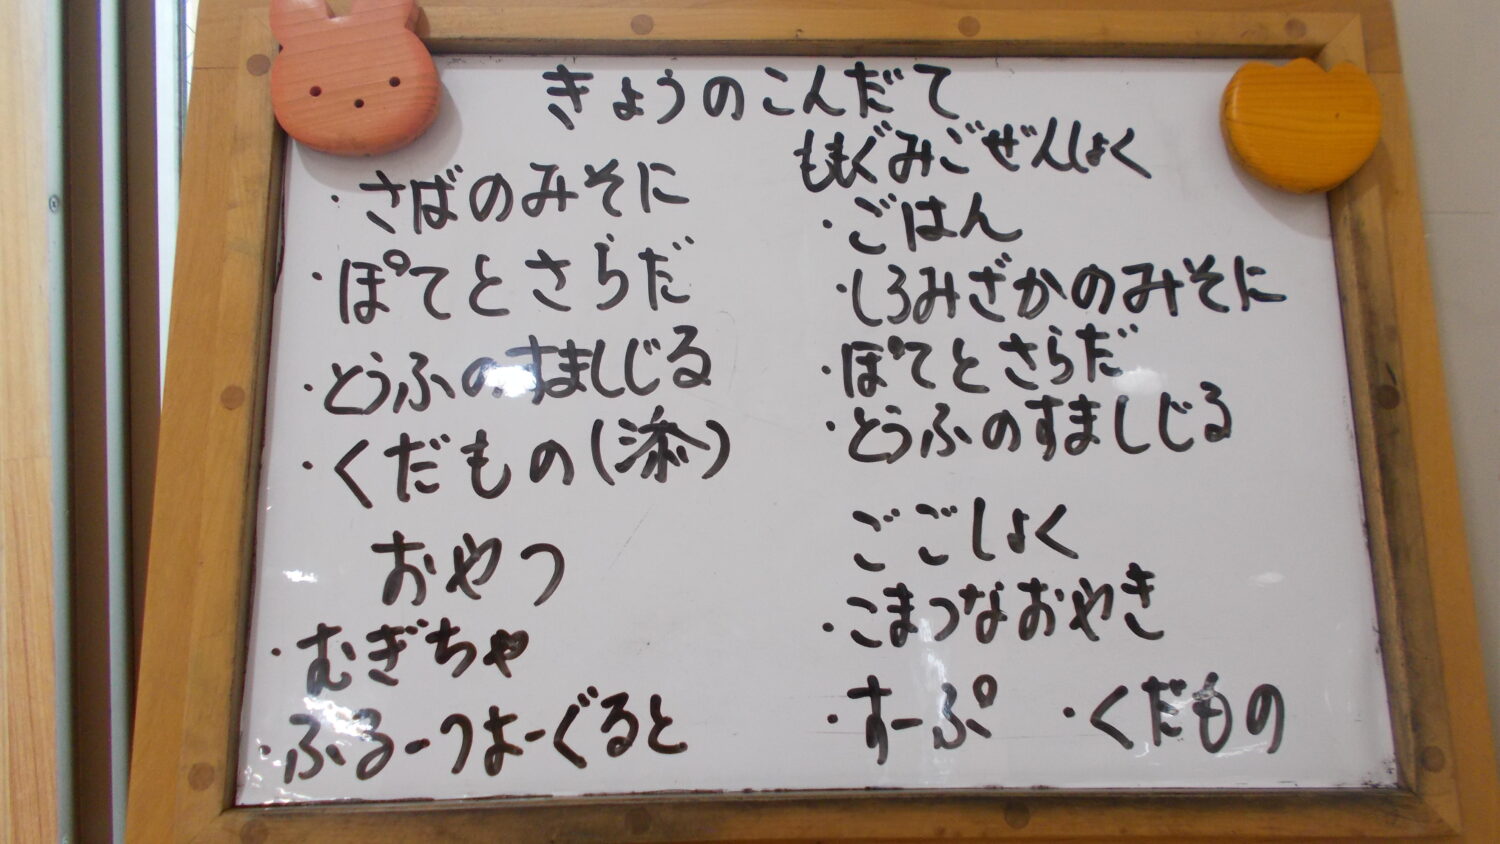 きょうのこんだて
・さばのみそに
・ぽてとさらだ
・とうふのすましじる
・くだもの(添)
おやつ
・むぎちゃ
・ふるーつよーぐると
ももぐみごぜんしょく
・ごはん
・しろみざかのみそに
・ぽてとさらだ
・とうふのすましじる
ごごしょく
・こまつなおやき
・すーぷ ・くだもの